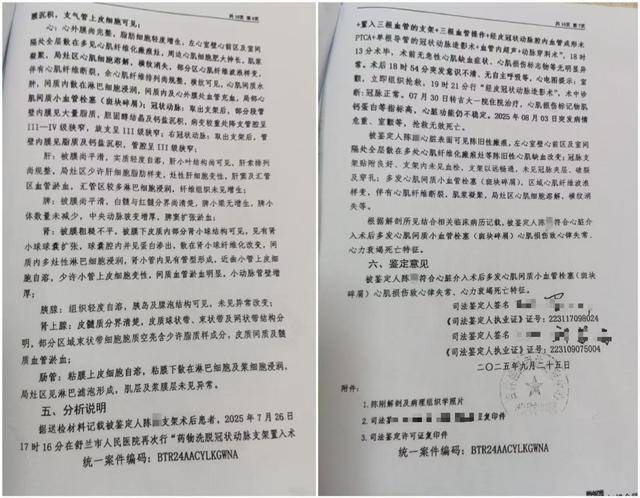 共10页 第6页
膜沉积,支气管上皮细胞可见;
心:心外膜尚完整,脂肪细胞轻度增生,左心室壁心前区及室间
隔处全层散在多处心肌纤维化瘢痕灶,周边心肌细胞肥大伸长,肌浆
凝聚,局灶区心肌细胞溶解,横纹消失,部分区心肌纤维波浪样变,
伴有心肌纤维断裂,余心肌纤维排列尚规整,横纹可见,心肌间质水
肿,间质内散在淋巴细胞浸润,间质内及心外膜处血管充血,局部心
肌间质小血管栓塞(斑块碎屑);冠状动脉:取出支架后,部分段管
壁内膜见大量脂质,胆固醇结晶及钙盐沉积,病变较重处持支管腔呈
III—IV级狭窄,旋支呈III级狭窄;右冠状动脉:取出支架后,管
壁内膜见脂质及钙盐沉积,管腔呈III级狭窄;
肝:被膜尚平滑,实质轻度自溶,肝小叶结构尚可见,肝索排列
尚规整,局灶区少许肝细胞脂肪样变,灶性肝细胞变性,肝窦及汇管
区血管淤血,汇管区较多淋巴细胞浸润,纤维组织未见增生;
脾:被膜尚平滑,白髓与红髓分界尚清楚,脾小梁无增生,脾小
体数量未减少,中央动脉玻变增厚,脾窦扩张淤血;
肾:被膜粗糙不平,被膜下皮质内部分肾小球结构可见,见有肾
小球球囊扩张,球囊腔内并见蛋白渗出,散在肾小球纤维化改变,间质
内多灶性淋巴细胞浸润,肾小管内见有管型形成,近曲小管上皮细
胞自溶,少许小管上皮细胞变性,间质血管淤血明显,小动脉管壁增
厚;
胰腺:组织轻度自溶,胰岛及腺泡结构可见,未见异常改变;
肾上腺:皮髓质分界清楚,皮质球状带、束状带及网状带结构分
明,部分区域束状带细胞胞质空亮含少许脂质样成分,皮质间质及髓
质血管淤血;
肠管:粘膜上皮细胞自溶,粘膜下散在淋巴细胞及浆细胞浸润,
局灶区见淋巴滤泡形成,肌层及浆膜层未见异常。
五、分析说明
据送检材料记载被鉴定人陈 支架术后患者,2025年7月26日
17时16分在舒兰市人民医院再次行“药物洗脱冠状动脉支架置入术
统一案件编码:BTR24AACYLKGWNA
共10页 第7页
+置入三根血管的支架+三根血管操作+经皮冠状动脉腔内血管成形术
PTCA+单根导管的冠状动脉造影术+血管内超声+动脉穿刺术”,18时
13分术毕,术前无急性心肌缺血症状、心肌损伤标志物等无明显异
常。术后18时54分突发意识不清、无自主呼吸等,心电图提示:室
颤,立即组织抢救,19时21分行“经皮冠状动脉造影术”,术中诊
断:冠脉正常。07月30日转吉大一院住院治疗,心肌损伤标记物肌
钙蛋白等指标高,心脏功能仍不稳定。2025年08月03日突发病情
危重、室颤等,抢救无效死亡。
被鉴定人陈 心脏表面可见陈旧性瘢痕,左心室壁心前区及室间
隔处全层散在多处心肌纤维化瘢痕灶等陈旧性心肌缺血改变;冠脉支
架贴附良好、支架内未见血栓、支架以远畅通,未见冠脉夹层、破裂
及穿孔;多发心肌间质小血管栓塞(斑块碎屑),区域心肌纤维波浪
样变,伴有心肌纤维断裂,肌浆凝聚,局灶区心肌细胞溶解,横纹消
失等。
根据解剖所见结合相关临床病历记载,被鉴定人陈 符合心脏介
入术后多发心肌间质小血管栓塞(斑块碎屑)心肌损伤致心律失常、
心力衰竭死亡特征。
六、鉴定意见
被鉴定人陈 符合心脏介入术后多发心肌间质小血管栓塞(斑块
碎屑)心肌损伤致心律失常、心力衰竭死亡特征。
司法鉴定人签名
《司法鉴定人执业证》证号:223117098024
司法鉴定人签名
《司法鉴定人执业证》证号:223109075004
二〇二五年九月二十五日
附件:
1.陈刚解剖及病理组织学照片
2.司法 复印件
3.司法鉴定许可证复印件
统一案件编码:BTR24AACYLKGWNA